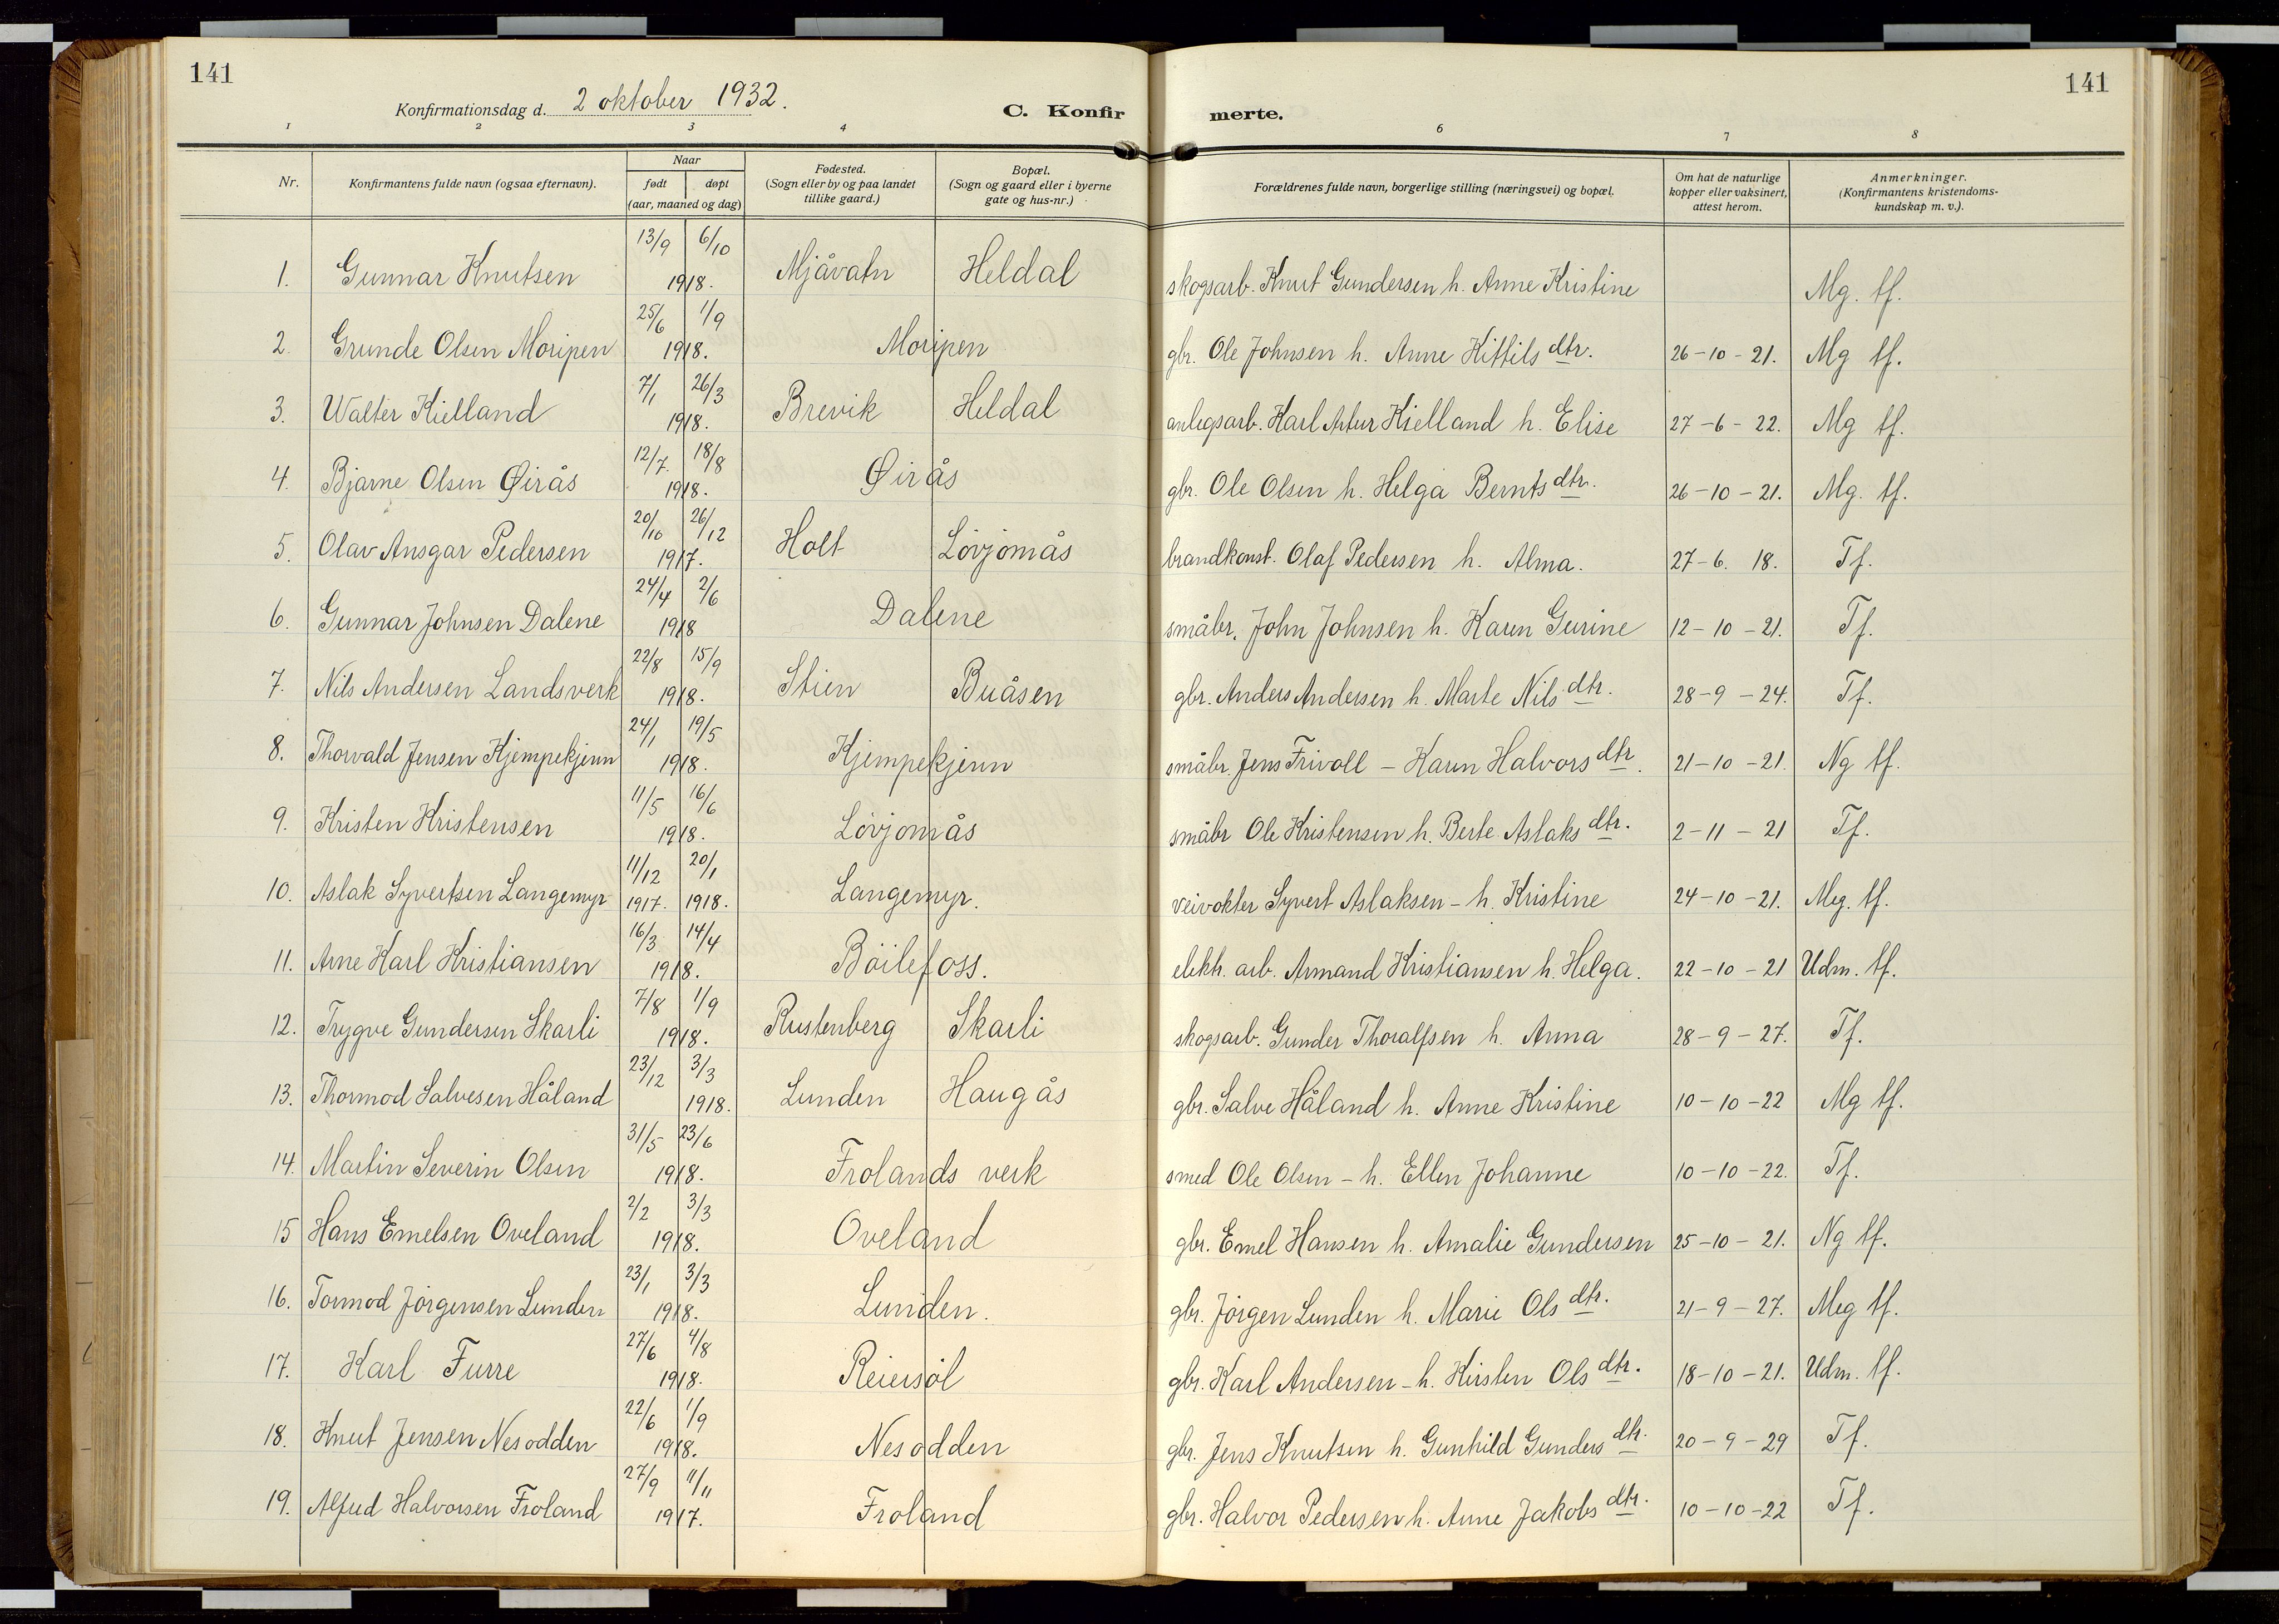 141
141
Konfirmationsdag d. 2 oktober 1932.
C. Konfir merte.
1 2 3 4 6 7 8
Nr.
Konfirmantens fulde navn (ogsaa efternavn).
Naar
født døpt
(aar, maaned og dag)
Fødested.
(Sogn eller by og paa landet
tillike gaard.)
Bopæl.
(Sogn og gaard eller i byerne
gate og hus-nr.)
Forældrenes fulde navn, borgerlige stilling (næringsvei) og bopæl.
Om hat de naturlige
kopper eller vaksinert,
attest herom.
Anmerkninger.
(Konfirmantens kristendoms-
kundskap m. v.).
1. Gunnar Knutsen 13/9 6/10 1918. Mjåvatn Heldal skogsarb. Knut Gundersen h. Anne Kristine Mg. tf.
2. Grunde Olsen Moripen 25/6 1/9 1918. Moripen gbr. Ole Johnsen h. Anne Kittils dtr. 26-10-21. Mg tf.
3. Walter Kielland 7/1 26/3 1918. Brevik Heldal anlegsarb. Karl Artur Kielland h. Elise 27-6-22. Mg tf.
4. Bjarne Olsen Øirås 12/7. 18/8 1918. Øirås gbr. Ole Olsen h. Helga Bernts dtr. 26-10-21. Mg. tf.
5. Olav Ansgar Pedersen 20/10 26/12 1917. Holt Lövjomås brandkonst. Olaf Pedersen h. Alma. 27-6. 18. Tf.
6. Gunnar Johnsen Dalene 24/4 2/6 1918 Dalene småbr. John Johnsen h. Karen Gurine 12-10-21. Tf.
7. Nils Andersen Landsverk 22/8 15/9 1918. Stien Buåsen gbr. Anders Andersen h. Marte Nils dtr. 28-9-24. Tf.
8. Thorvald Jensen Kjempekjenn 24/1 19/5 1918. Kjempekjenn småbr. Jens Frivoll - Karen Halvors dtr. 21-10-21. Ng tf.
9. Kristen Kristensen 11/5 16/6 1918. Lövjomås småbr Ole Kristensen h. Berte Aslaks dtr. 2-11-21 Tf.
10. Aslak Syvertsen Langemyr 11/12 20/1 1917. 1918. Langemyr. veivokter Syvert Aslaksen - h. Kristine 24-10-21. Meg. tf.
11. Arne Karl Kristiansen 16/3 14/4 1918. Böilefoss. elektr. arb. Armand Kristiansen h. Helga. 22-10-21 Udm. tf.
12. Trygve Gundersen Skarli 7/8 1/9 1918. Rustenberg Skarli skogsarb. Gunder Thoralfsen h. Anna 28-9-27. Tf.
13. Thormod Salvesen Håland 23/12 3/3 1918. Lunden Haugås gbr. Salve Håland h. Anne Kristine 10-10-22 Mg tf.
14. Martin Severin Olsen 31/5 23/6 1918. Frolands verk smed Ole Olsen - h. Ellen Johanne 10-10-22. Tf.
15 Hans Emelsen Oveland 2/2 3/3 1918. Oveland gbr. Emel Hansen h. Amalie Gundersen 25-10-21. Ng tf.
16. Tormod Jörgensen Lunden 23/1 3/3 1918. Lunden. gbr. Jörgen Lunden h. Marie Ols dtr. 21-9-27. Meg tf.
17. Karl Furre 27/6 4/8 1918. Reiersöl gbr. Karl Andersen - h. Kirsten Ols dtr. 18-10-21. Udm. tf.
18. Knut Jensen Nesodden 22/6 1/9 1918. Nesodden gbr. Jens Knutsen h. Gunhild Gunders dtr. 20-9-29 Tf.
19. Alfred Halvorsen Froland 27/9 11/11 1917. Froland gbr. Halvor Pedersen h. Anne Jakobs dtr. 10-10-22 Tf.